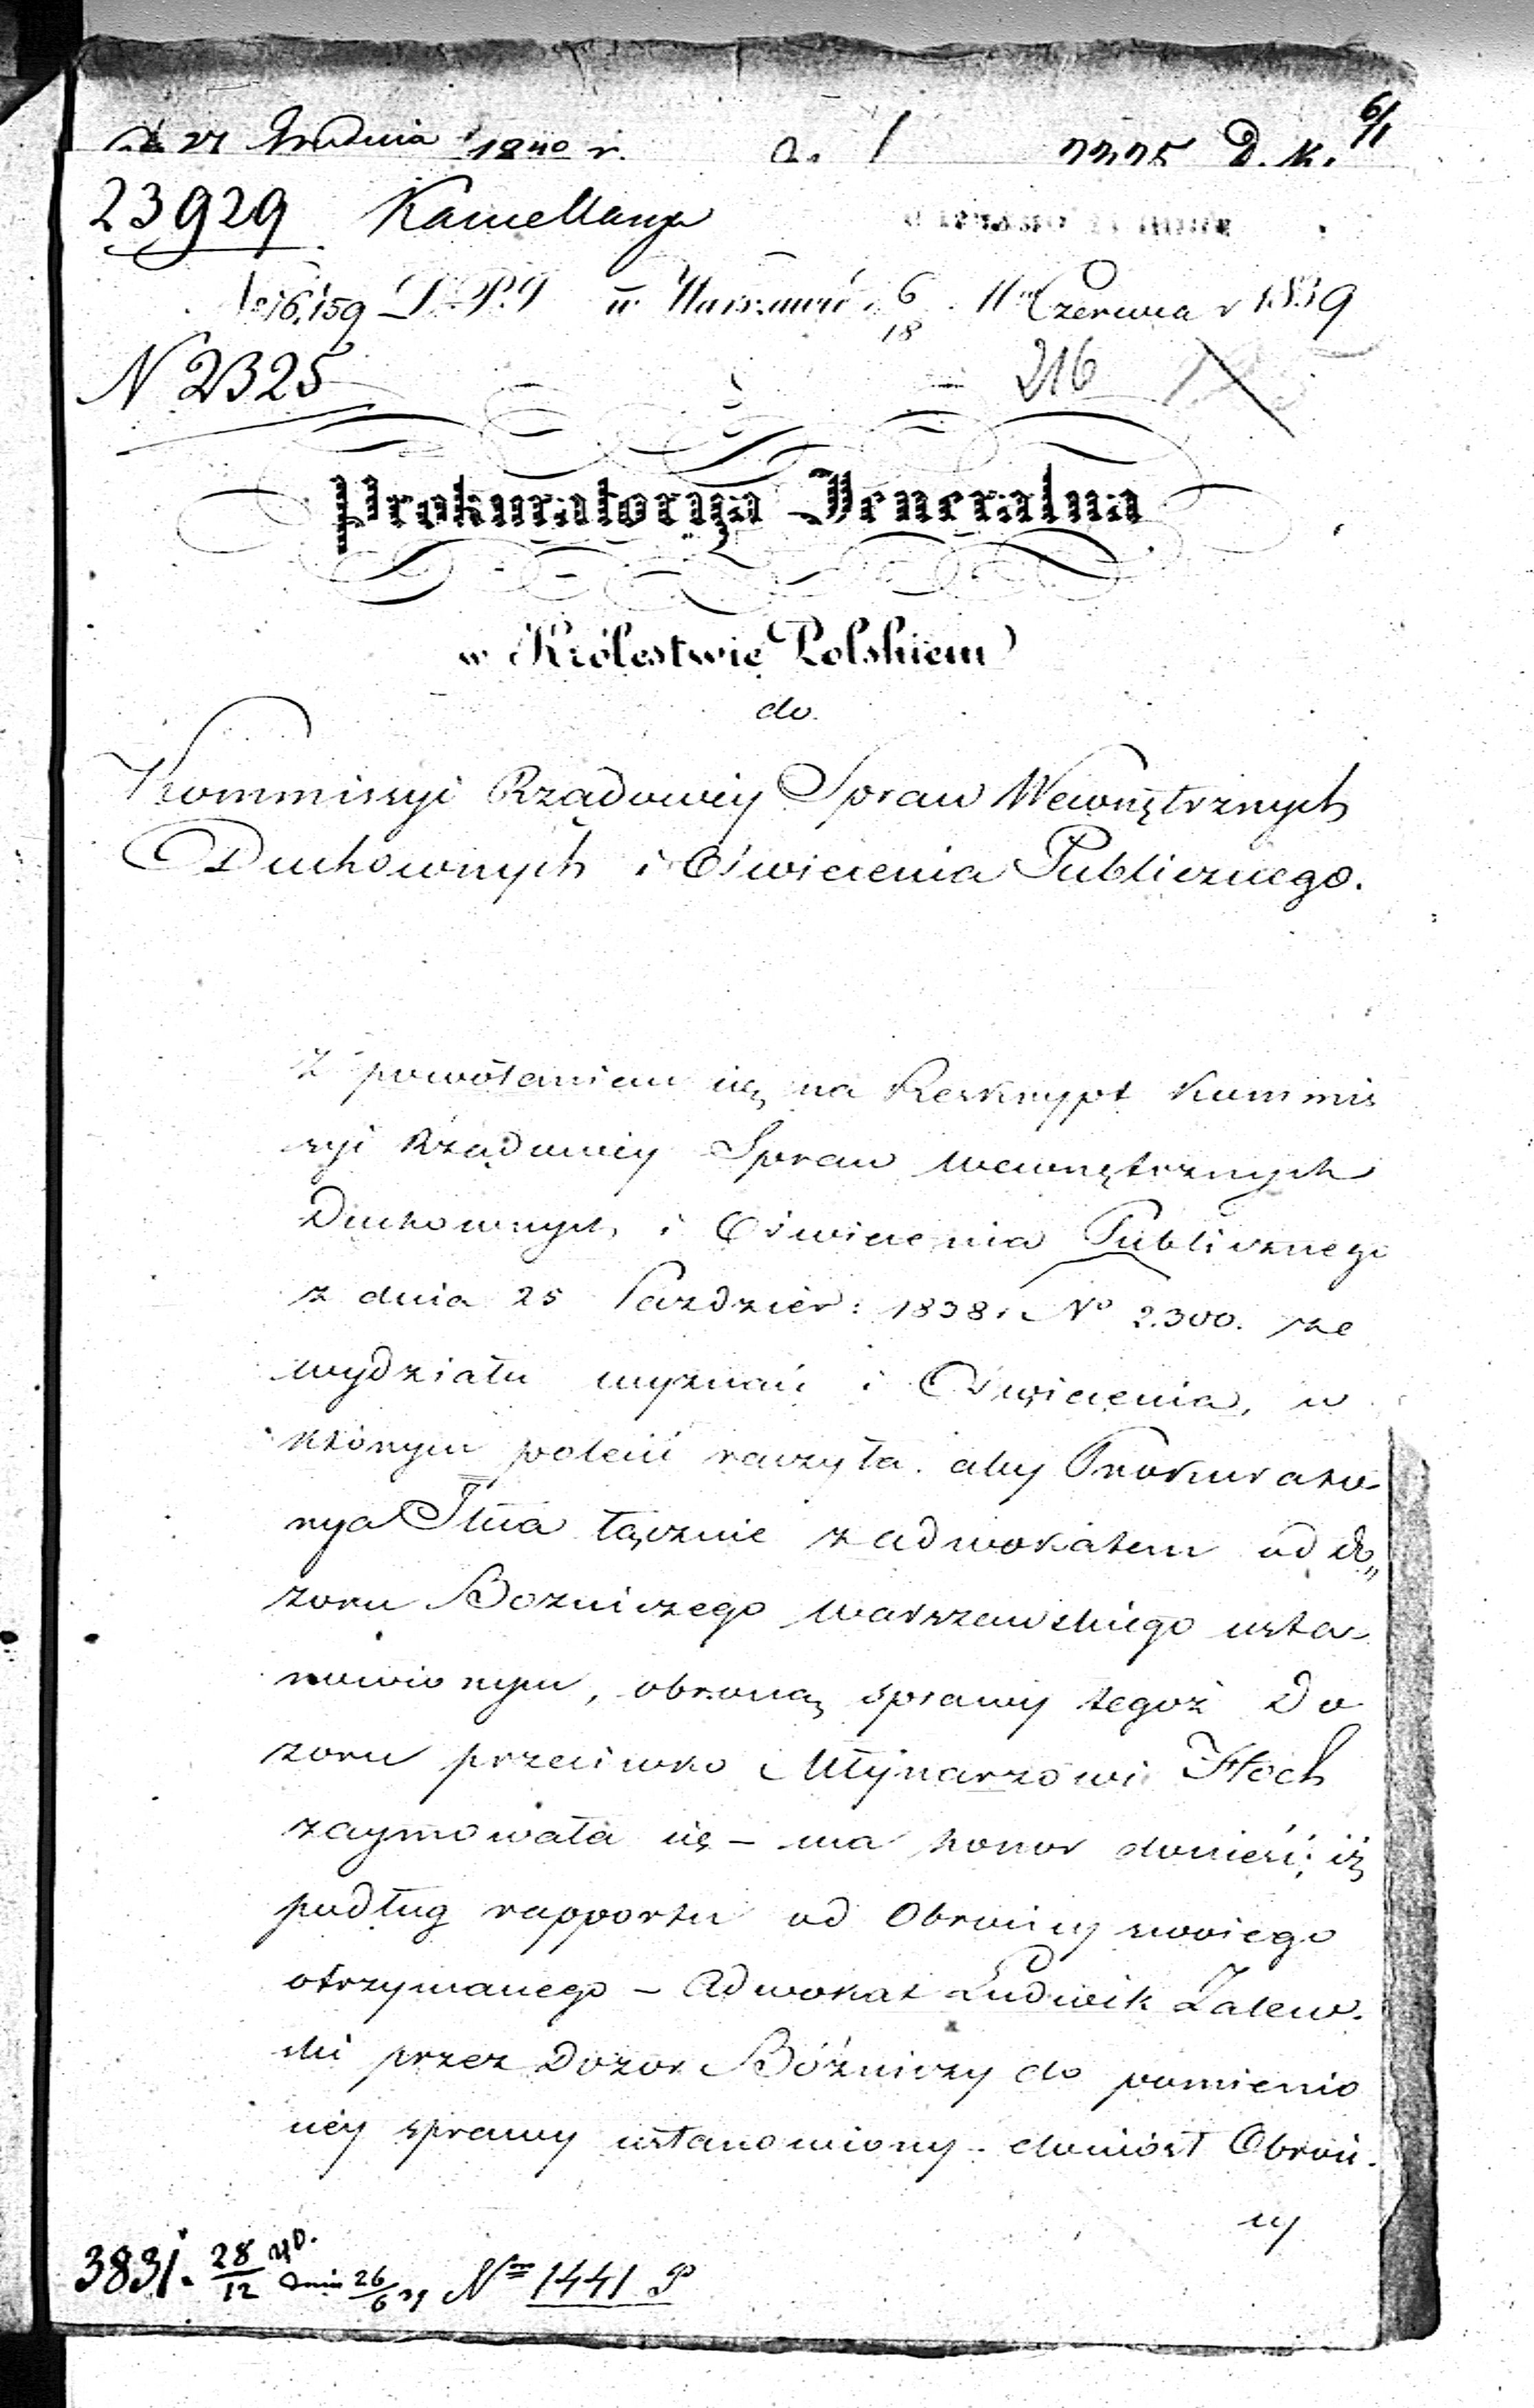 27 Grudnia 1840 r.
23929 Kancellarya
No 16,159 D. P. J w Warszawie d. 6/18 Mca Czerwca r 1839
N 2325 216
Prokuratorya Jeneralna
w Królestwie Polskiem
do
Kommissyi Rządowéy Spraw Wewnętrznych
Duchownych i Oświecenia Publicznego.
Z powołaniem się na Reskrypt Kommis
syi Rządowéy Spraw Wewnętrznych
Duchownych i Oświecenia Publicznego
z dnia 25 Paździer: 1838 r. No 2.300. ze
wydziału wyznań i Oświecenia, w
którym polecić raczyła. aby Prokurato-
rya Jlna łącznie z adwokatem od do„
zoru Bozniczego Warszawskiego usta-
nowionym, obroną sprawy tegoż Do
zoru przeciwko Młynarzowi Hoch
zaymowała się – ma honor donieść; iż
podług rapportu od Obrońcy swoiego
otrzymanego – Adwokat Ludwik Zalew.
ski przez Dozor Bóżniczy do pomienio
néy sprawy ustanowiony. doniósł Obroń.
cy
3831. 28/12 dnia 26/6 39 Nro 1441 P